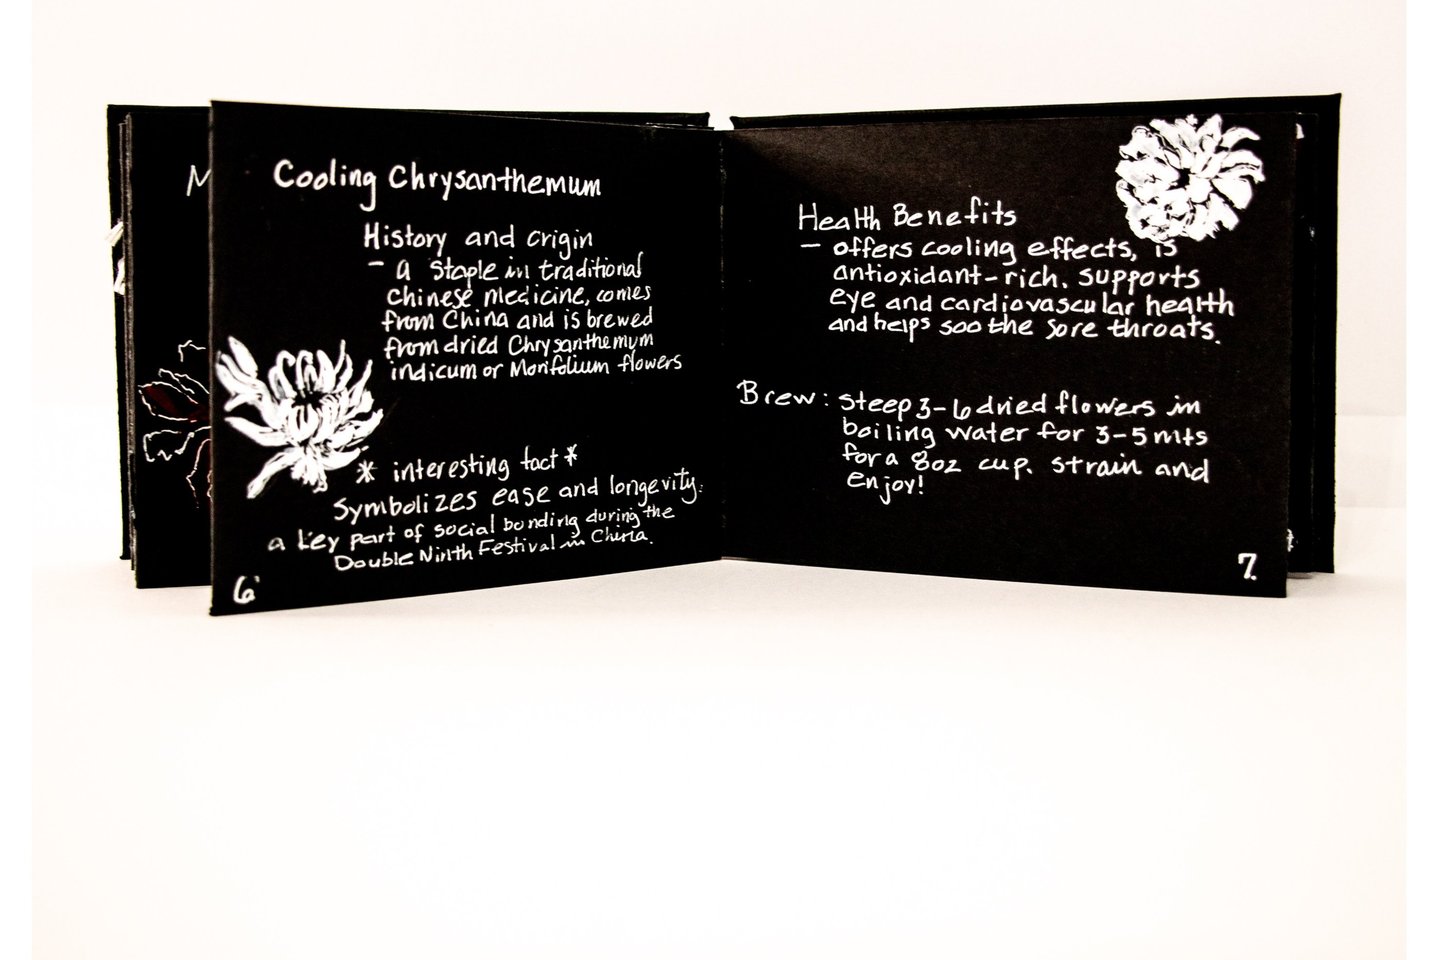 M
Cooling Chrysanthemum
History and origin
- a staple in traditional
Chinese medicine, comes
from China and is brewed
from dried Chrysanthemym
indicum or Morifolium flowers
* interesting fact *
Symbolizes ease and longevity.
a key part of social bonding during the
Double Ninth Festival in China.
6
Health Benefits
- offers cooling effects, is
antioxidant-rich. supports
eye and cardiovascular health
and helps soothe sore throats.
Brew: steep 3-6 dried flowers in
boiling water for 3-5 mts
for a 8oz cup. strain and
enjoy!
7.